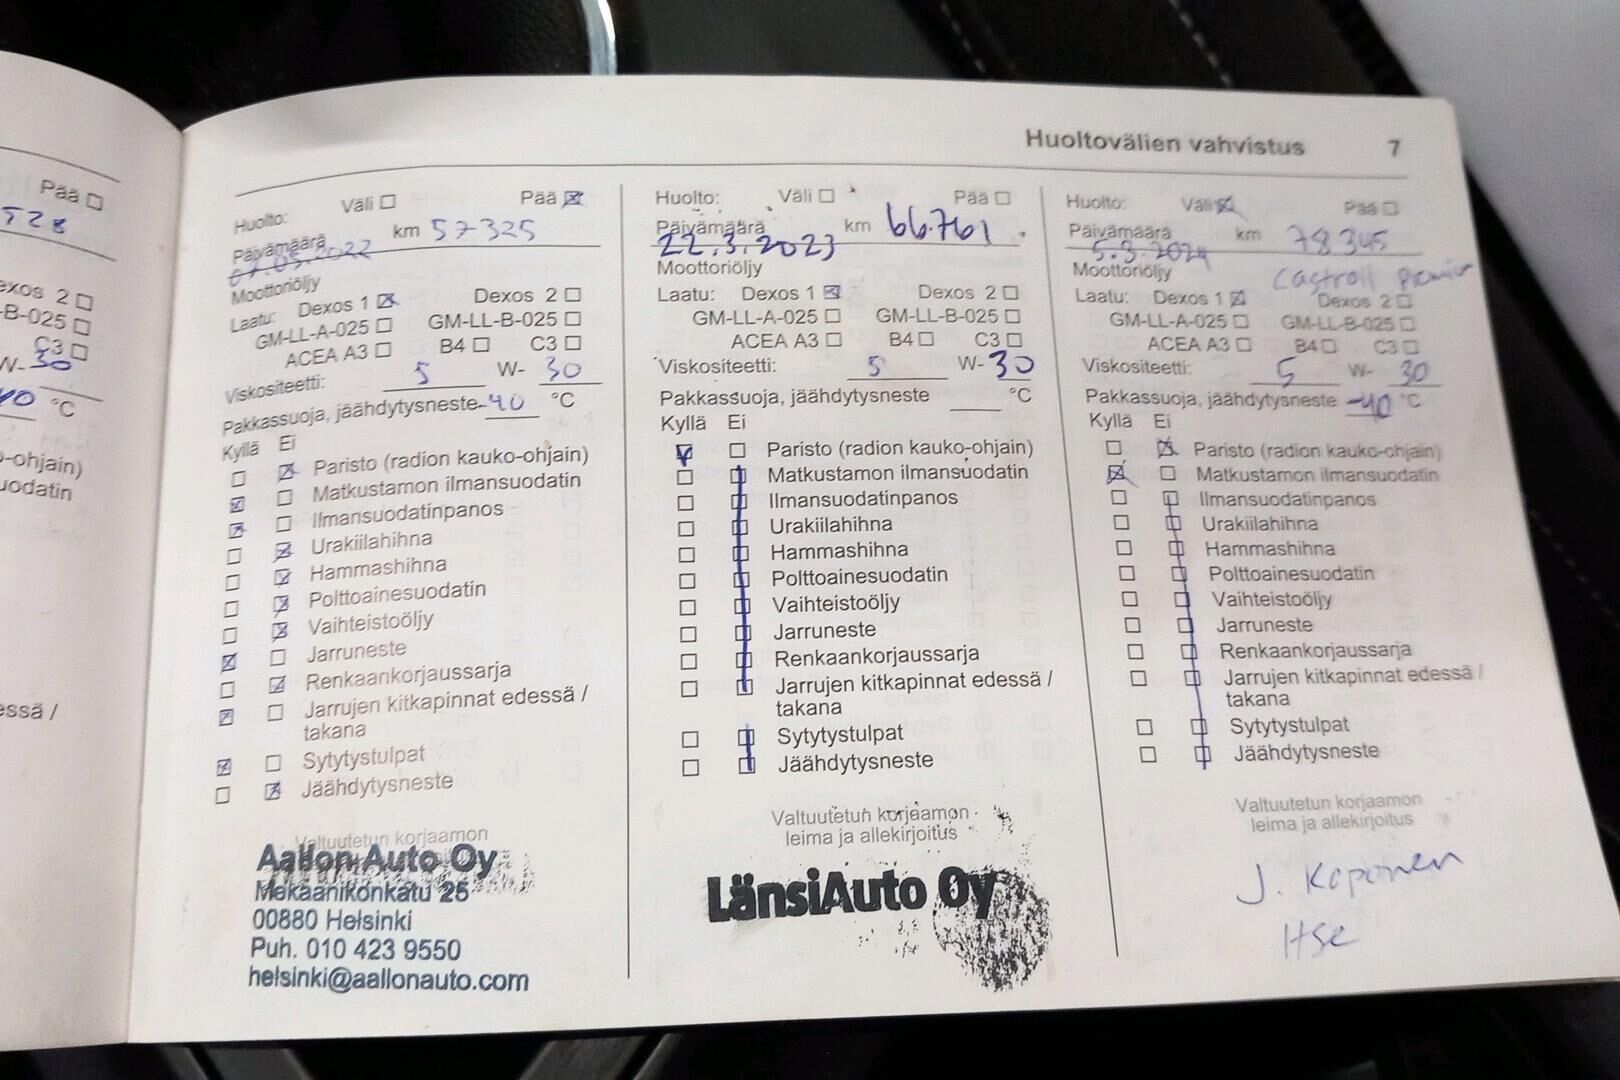 Huoltovälien vahvistus 7
Pää
528
exos 2
-B-025
C3
W- 30
40 °C
o-ohjain)
uodatin
essä /
Huolto: Väli Pää
Päivämäärä km 57325
07.03.2022
Moottoriöljy
Laatu: Dexos 1 Dexos 2
GM-LL-A-025 GM-LL-B-025
ACEA A3 B4 C3
Viskositeetti: 5 W- 30
Pakkassuoja, jäähdytysneste -40 °C
Kyllä Ei
Paristo (radion kauko-ohjain)
Matkustamon ilmansuodatin
Ilmansuodatinpanos
Urakiilahihna
Hammashihna
Polttoainesuodatin
Vaihteistoöljy
Jarruneste
Renkaankorjaussarja
Jarrujen kitkapinnat edessä /
takana
Sytytystulpat
Jäähdytysneste
Valtuutetun korjaamon
Aallon Auto Oy
Mekaanikonkatu 25
00880 Helsinki
Puh. 010 423 9550
helsinki@aallonauto.com
Huolto: Väli Pää
Päivämäärä km 66.761
22.3.2023
Moottoriöljy
Laatu: Dexos 1 Dexos 2
GM-LL-A-025 GM-LL-B-025
ACEA A3 B4 C3
Viskositeetti: 5 W- 30
Pakkassuoja, jäähdytysneste °C
Kyllä Ei
Paristo (radion kauko-ohjain)
Matkustamon ilmansuodatin
Ilmansuodatinpanos
Urakiilahihna
Hammashihna
Polttoainesuodatin
Vaihteistoöljy
Jarruneste
Renkaankorjaussarja
Jarrujen kitkapinnat edessä /
takana
Sytytystulpat
Jäähdytysneste
Valtuutetun korjaamon
leima ja allekirjoitus
LänsiAuto Oy
Huolto: Väli Pää
Päivämäärä km 78345
5.3.2024
Moottoriöljy Castroil
Laatu: Dexos 1 Dexos 2
GM-LL-A-025 GM-LL-B-025
ACEA A3 B4 C3
Viskositeetti: 5 W- 30
Pakkassuoja, jäähdytysneste -40 °C
Kyllä Ei
Paristo (radion kauko-ohjain)
Matkustamon ilmansuodatin
Ilmansuodatinpanos
Urakiilahihna
Hammashihna
Polttoainesuodatin
Vaihteistoöljy
Jarruneste
Renkaankorjaussarja
Jarrujen kitkapinnat edessä /
takana
Sytytystulpat
Jäähdytysneste
Valtuutetun korjaamon
leima ja allekirjoitus
J. Koponen
Itse